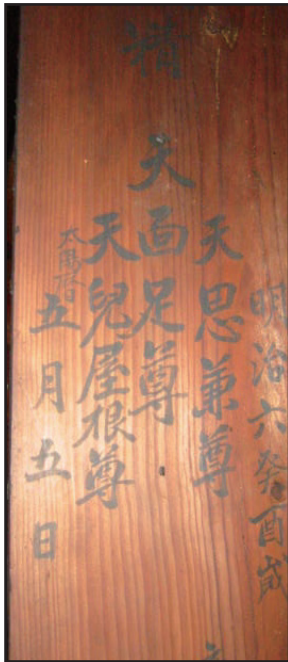 明治六癸酉歳
天思兼尊
天面足尊
天兒屋根尊
五月五日